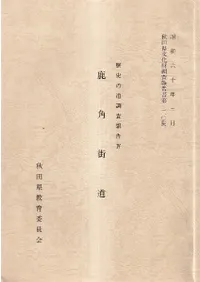 昭和六十年三月
秋田県文化財調査報告書第一二〇集
歴史の道調査報告Ⅳ
鹿角街道
秋田県教育委員会